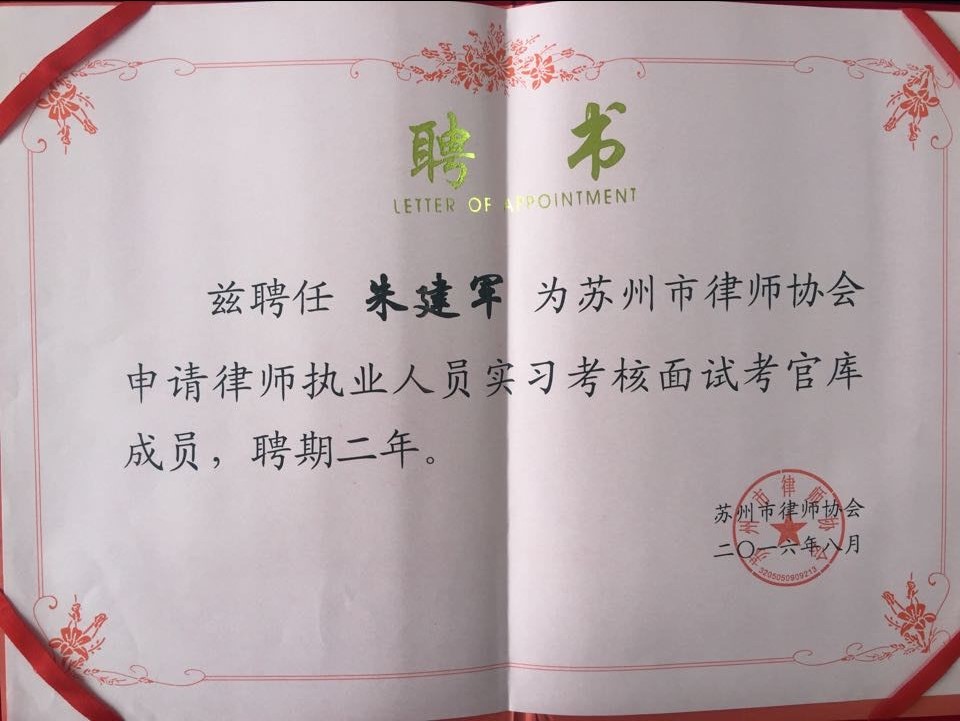 聘 书
LETTER OF APPOINTMENT
兹聘任 朱建军 为苏州市律师协会
申请律师执业人员实习考核面试考官库
成员，聘期二年。
苏州市律师协会
二〇一六年八月
苏州市律师协会
3205050909213